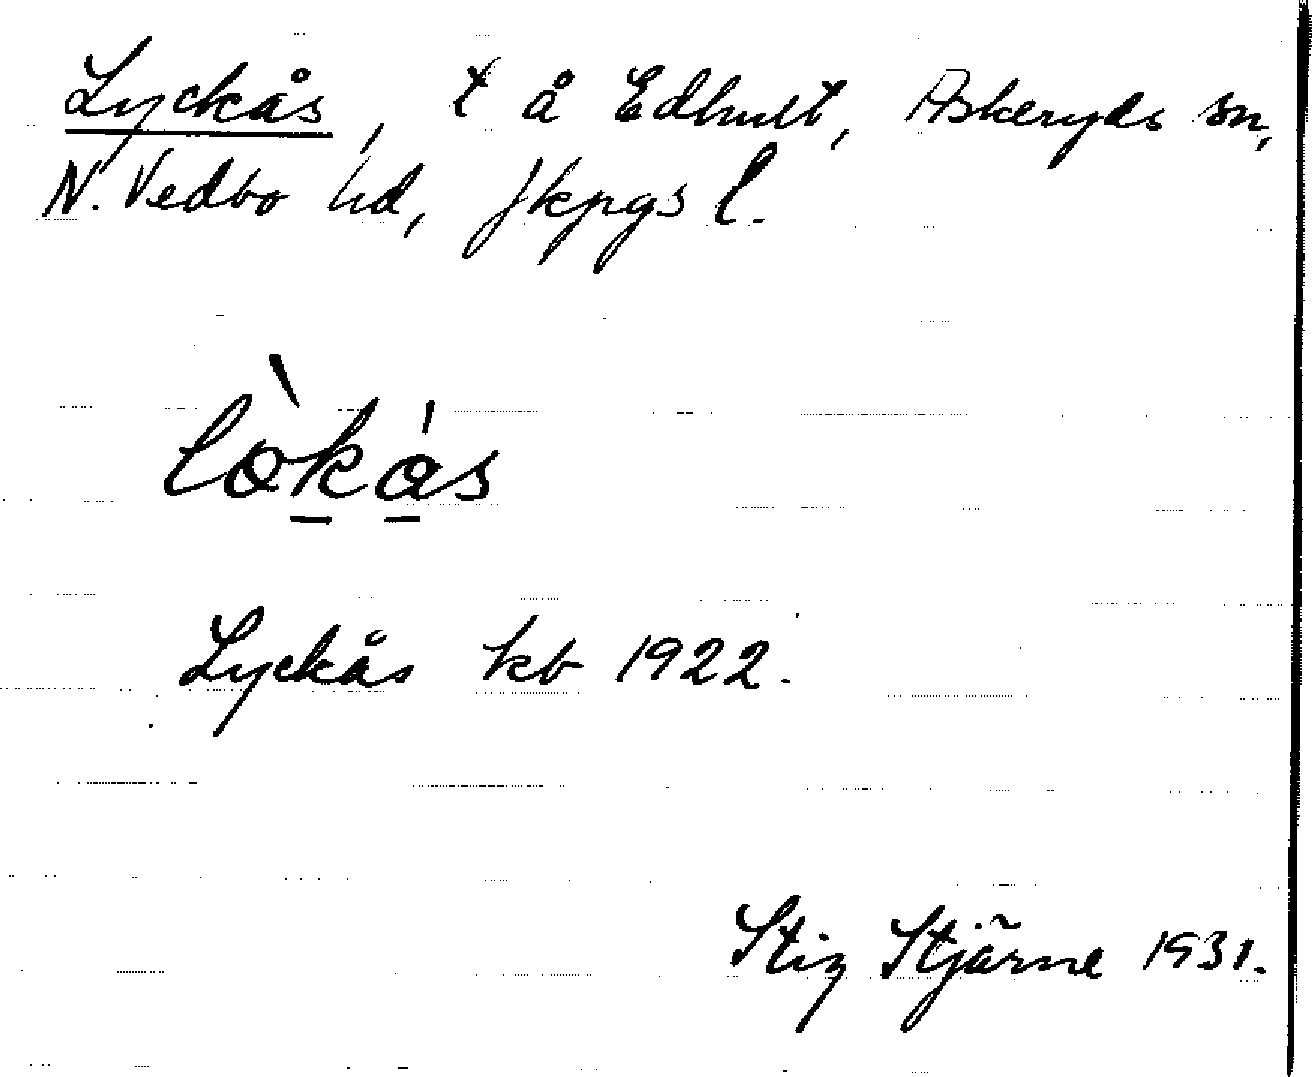 Lyckås, t å Edhult, Askeryds sn,
N. Vedbo hd, Jkpgs l.
lòkás
Lyckås kb 1922.
Stig Stjärne 1931.